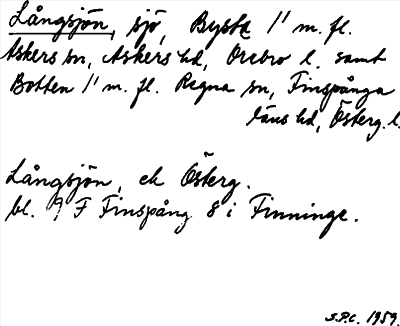 Långsjön, sjö, Bysta 1/1 m. fl.
Askers sn, Askers hd, Örebro l. samt
Botten 1/1 m. fl. Regna sn, Finspånga
läns hd, Österg. l.
Långsjön, ek Österg.
bl. 9 F Finspång 8 i Finninge.
S.P.C. 1959.